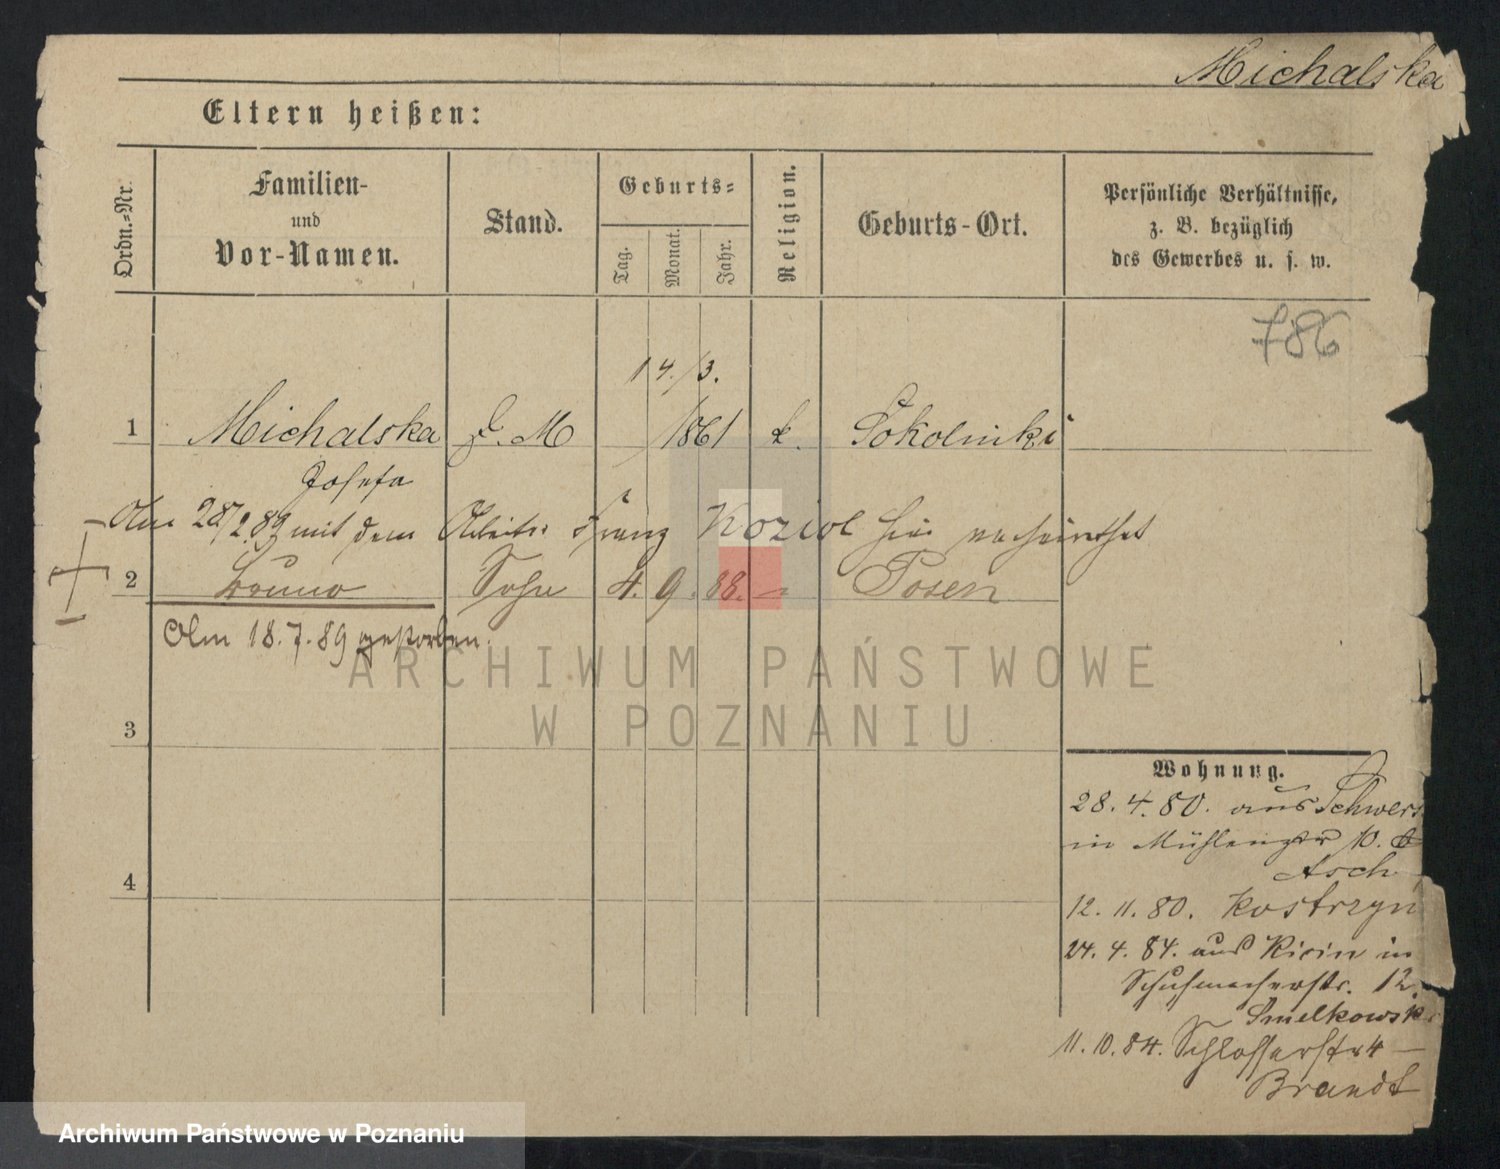 Michalska
Eltern heißen:
Ordn.-Nr.
Familien-
und
Vor-Namen.
Stand.
Geburts-
Tag.
Monat.
Jahr.
Religion.
Geburts-Ort.
Persönliche Verhältnisse,
z. B. bezüglich
des Gewerbes u. s. w.
786
14./3.
1 Michalska D. M 1861 k. Sokolniki
Josefa
Am 28/2.89 mit dem Arbeiter Franz Koziol hier verheirathet
2 Bruno Sohn 4. 9. 88. – Posen
Am 18.7.89 gestorben.
3
4
Wohnung.
28. 4. 80. aus Schwers
in Mühlenstr 10. b
Asch
12. 11. 80. Kostrzyn
24. 4. 84. aus Kicin in
Schuhmacherstr. 12.
Smelkowsk
11. 10. 84. Schlosserstr 4 –
Brandt
ARCHIWUM PAŃSTWOWE
W POZNANIU
Archiwum Państwowe w Poznaniu